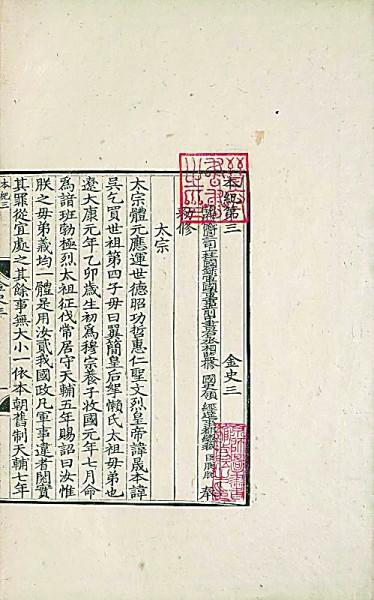 本紀第三　金史三
開府儀同三司上柱國錄軍國重事前中書右丞相監修　國史領　經筵事都總裁臣脫脫　奉
勑修
太宗
太宗體元應運世德昭功哲惠仁聖文烈皇帝諱晟本諱
吳乞買世祖第四子母曰翼簡皇后拏懶氏太祖母弟也
遼大康元年乙卯歲生初為穆宗養子收國元年七月命
為諳班勃極烈太祖征伐常居守天輔五年賜詔曰汝惟
朕之母弟義均一體是用汝貳我國政凡軍事違者閱實
其罪從宜處之其餘事無大小一依本朝舊制天輔七年
本紀三　金史三　一